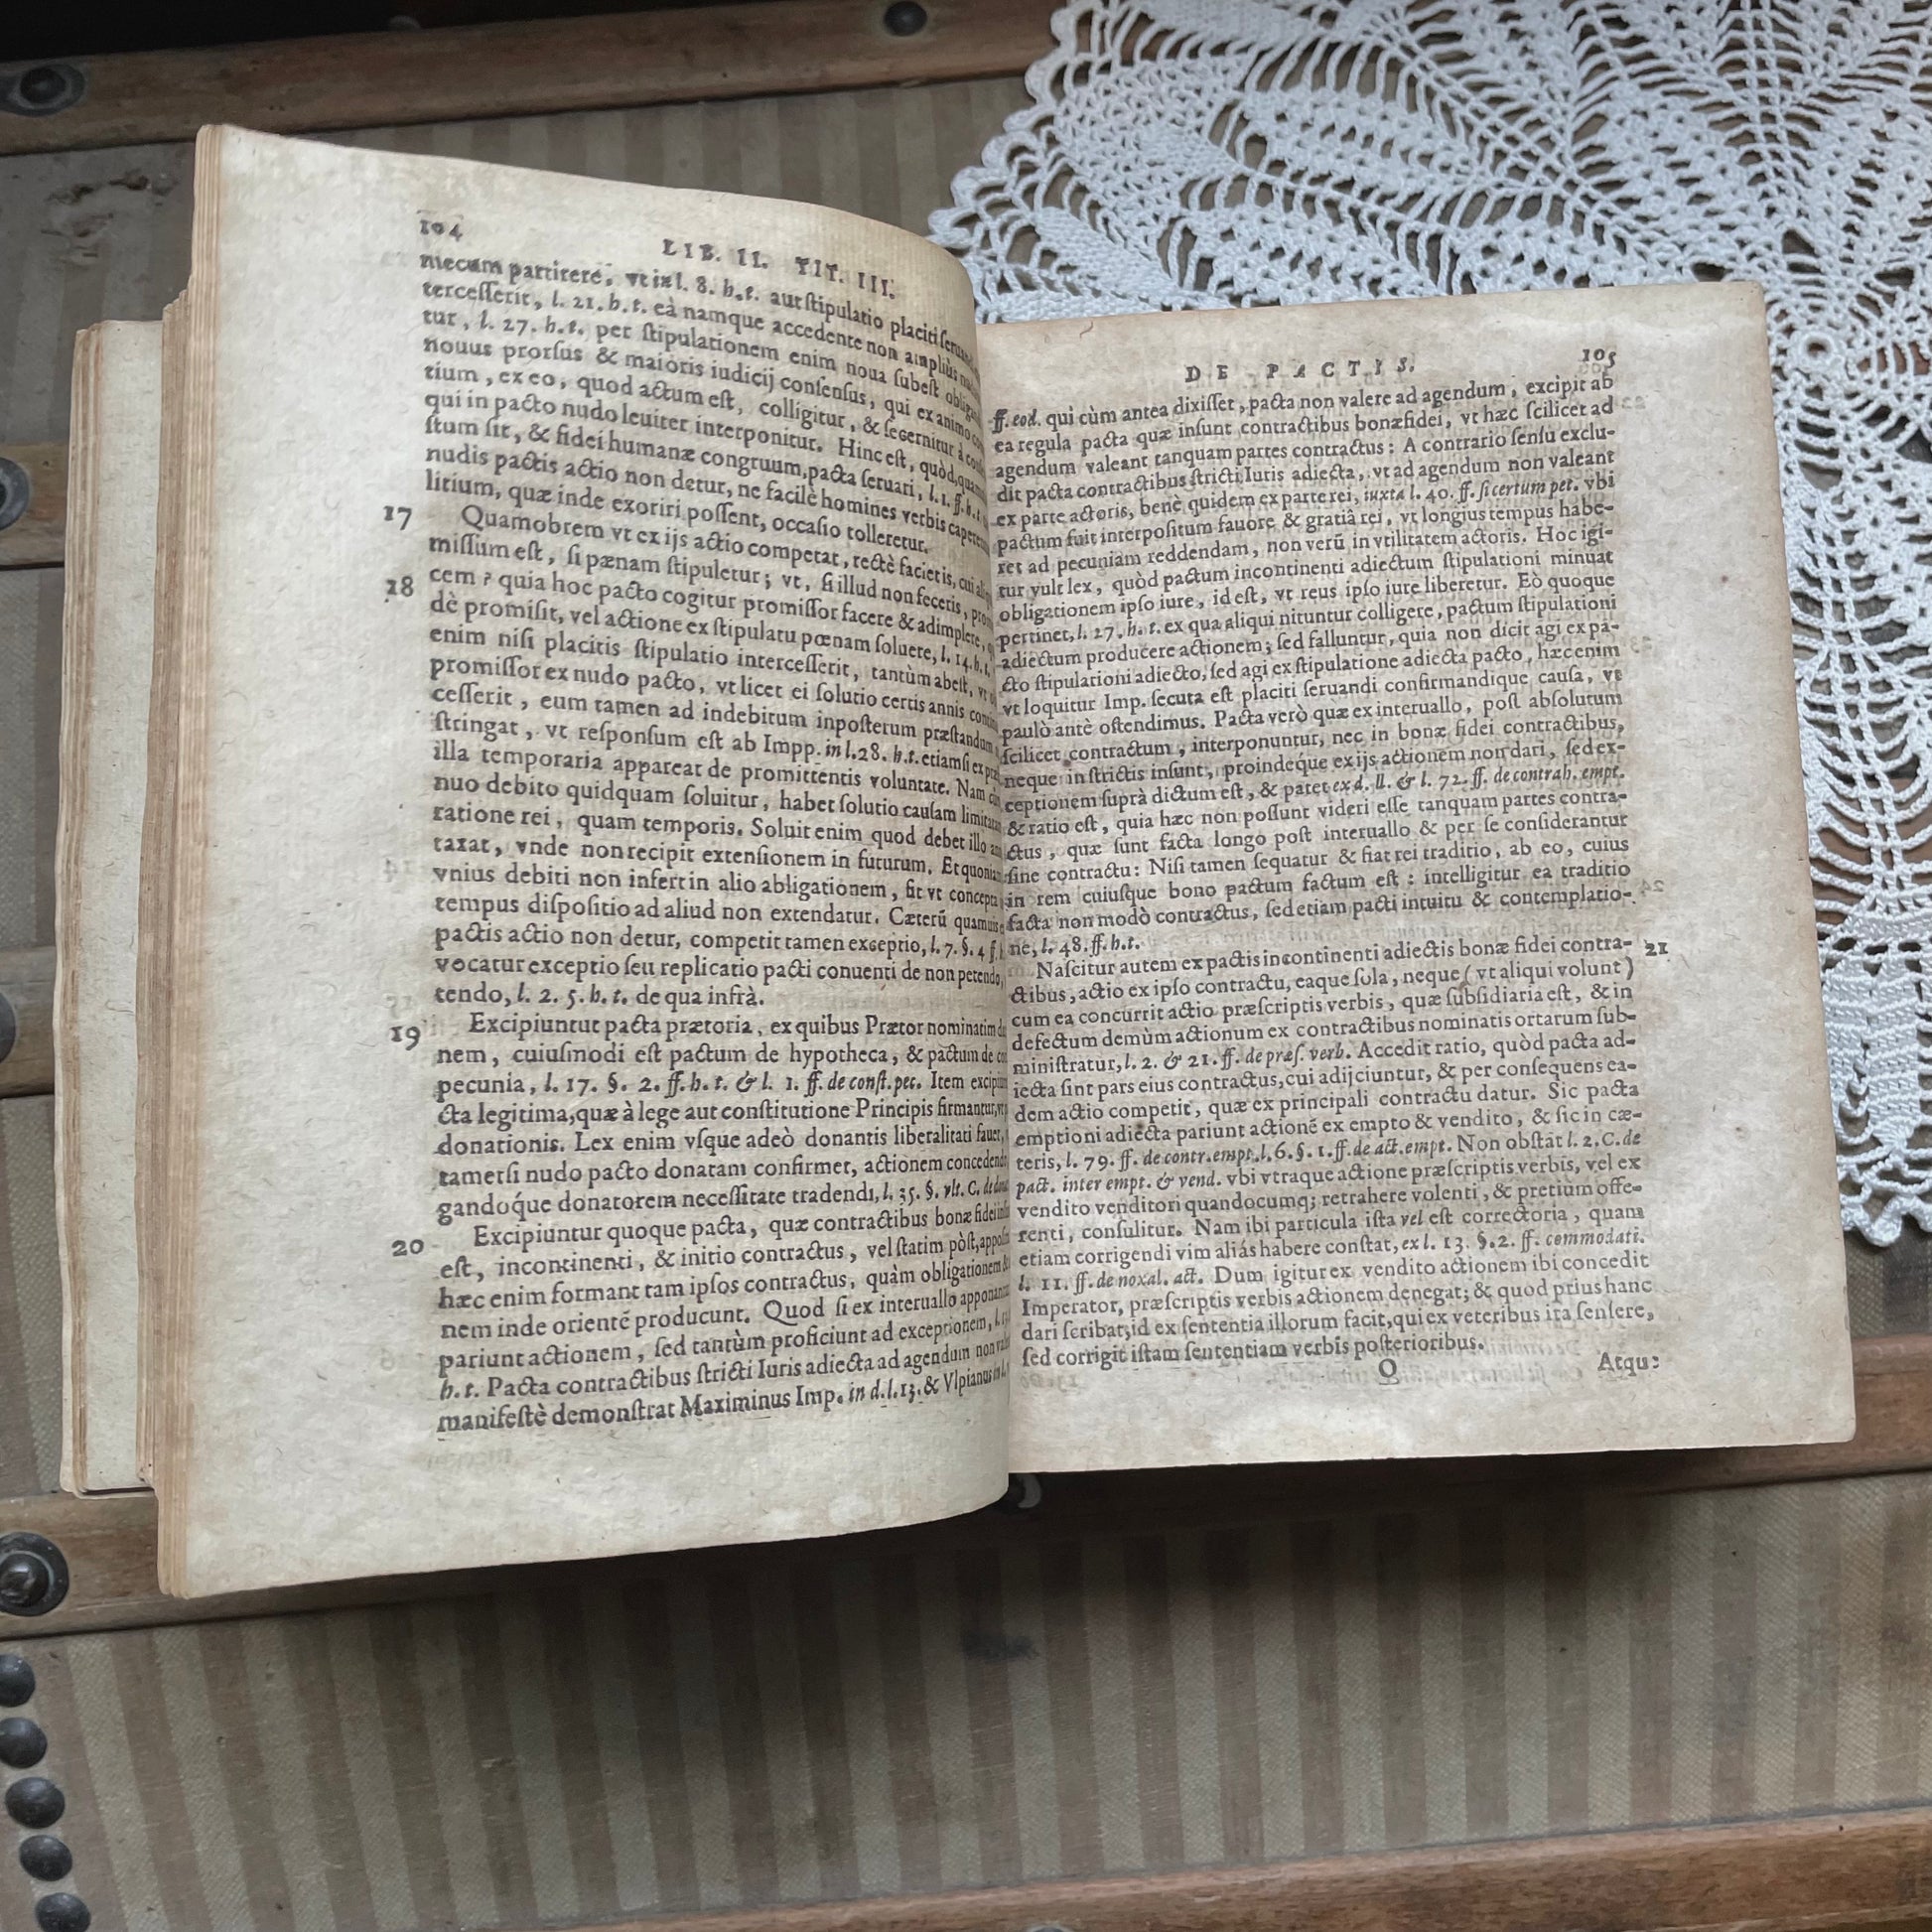 104
LIB. II. TIT. III.
mecum partirere, vt in l. 8. h.t. aut stipulatio placiti
tercesserit, l. 21. h.t. eà namque accedente non ampliùs
tur, l. 27. h.t. per stipulationem enim noua subest
nouus prorsus & maioris iudicij consensus, qui ex animo
tium, ex eo, quod actum est, colligitur, & secernitur à
qui in pacto nudo leuiter interponitur. Hinc est, quòd,
stum sit, & fidei humanæ congruum, pacta seruari, l. 1. ff. h.t.
nudis pactis actio non detur, ne facilè homines verbis
litium, quæ inde exoriri possent, occasio tolleretur.
17 Quamobrem vt ex ijs actio competat, rectè facietis, cui
missum est, si pænam stipuletur; vt, si illud non feceris,
18 cem? quia hoc pacto cogitur promissor facere & adimplere,
dè promisit, vel actione ex stipulatu pœnam soluere, l. 14. h.t.
enim nisi placitis stipulatio intercesserit, tantùm abest, vt
promissor ex nudo pacto, vt licet ei solutio certis annis
cesserit, eum tamen ad indebitum inposterum præstandum
stringat, vt responsum est ab Impp. in l. 28. h.t. etiamsi ex
illa temporaria appareat de promittentis voluntate. Nam
nuo debito quidquam soluitur, habet solutio causam
ratione rei, quam temporis. Soluit enim quod debet illo
taxat, vnde non recipit extensionem in futurum. Et quoniam
vnius debiti non infert in alio abligationem, fit vt concepta
tempus dispositio ad aliud non extendatur. Cæterũ quamuis
pactis actio non detur, competit tamen exceptio, l. 7. §. 4 ff.
vocatur exceptio seu replicatio pacti conuenti de non petendo,
tendo, l. 2. 5. h.t. de qua infrà.
19 Excipiuntut pacta prætoria, ex quibus Prætor nominatim
nem, cuiusmodi est pactum de hypotheca, & pactum de
pecunia, l. 17. §. 2. ff. h.t. & l. 1. ff. de const. pec. Item
cta legitima, quæ à lege aut constitutione Principis firmantur,
donationis. Lex enim vsque adeò donantis liberalitati fauet,
tametsi nudo pacto donatam confirmet, actionem concedendo
gandoq́ue donatorem necessitate tradendi, l. 35. §. vlt. C. de
20 Excipiuntur quoque pacta, quæ contractibus bonæ fidei
est, incontinenti, & initio contractus, vel statim pòst,
hæc enim formant tam ipsos contractus, quàm obligationem
nem inde orientẽ producunt. Quod si ex interuallo
pariunt actionem, sed tantùm proficiunt ad exceptionem,
h.t. Pacta contractibus stricti Iuris adiecta ad agendum non
manifestè demonstrat Maximinus Imp. in d. l. 13. & Vlpianus
DE PACTIS. 105
ff. eod. qui cùm antea dixisset, pacta non valere ad agendum, excipit ab
ea regula pacta quæ insunt contractibus bonæfidei, vt hæc scilicet ad
agendum valeant tanquam partes contractus: A contrario sensu exclu-
dit pacta contractibus stricti Iuris adiecta, vt ad agendum non valeant
ex parte actoris, benè quidem ex parte rei, iuxta l. 40. ff. si certum pet. vbi
pactum fuit interpositum fauore & gratiâ rei, vt longius tempus habe-
ret ad pecuniam reddendam, non verũ in vtilitatem actoris. Hoc igi-
tur vult lex, quòd pactum incontinenti adiectum stipulationi minuat
obligationem ipso iure, id est, vt reus ipso iure liberetur. Eò quoque
pertinet, l. 27. h.t. ex qua aliqui nituntur colligere, pactum stipulationi
adiectum producere actionem; sed falluntur, quia non dicit agi ex pa-
cto stipulationi adiecto, sed agi ex stipulatione adiecta pacto, hæc enim
vt loquitur Imp. secuta est placiti seruandi confirmandique causa, vt
paulò antè ostendimus. Pacta verò quæ ex interuallo, post absolutum
scilicet contractum, interponuntur, nec in bonæ fidei contractibus,
neque in strictis insunt, proindeque ex ijs actionem non dari, sed ex-
ceptionem suprà dictum est, & patet ex d. ll. & l. 72. ff. de contrah. empt.
& ratio est, quia hæc non possunt videri esse tanquam partes contra-
ctus, quæ sunt facta longo post interuallo & per se considerantur
sine contractu: Nisi tamen sequatur & fiat rei traditio, ab eo, cuius
in rem cuiusque bono pactum factum est: intelligitur ea traditio
facta non modò contractus, sed etiam pacti intuitu & contemplatio-
ne, l. 48. ff. h.t.
Nascitur autem ex pactis incontinenti adiectis bonæ fidei contra- 21
ctibus, actio ex ipso contractu, eaque sola, neque (vt aliqui volunt)
cum ea concurrit actio præscriptis verbis, quæ subsidiaria est, & in
defectum demùm actionum ex contractibus nominatis ortarum sub-
ministratur, l. 2. & 21. ff. de præs. verb. Accedit ratio, quòd pacta ad-
iecta sint pars eius contractus, cui adijciuntur, & per consequens ea-
dem actio competit, quæ ex principali contractu datur. Sic pacta
emptioni adiecta pariunt actionẽ ex empto & vendito, & sic in cæ-
teris, l. 79. ff. de contr. empt. l. 6. §. 1. ff. de act. empt. Non obstat l. 2. C. de
pact. inter empt. & vend. vbi vtraque actione præscriptis verbis, vel ex
vendito venditori quandocumq; retrahere volenti, & pretium offe-
renti, consulitur. Nam ibi particula ista vel est correctoria, quam
etiam corrigendi vim aliás habere constat, ex l. 13. §. 2. ff. commodati.
l. 11. ff. de noxal. act. Dum igitur ex vendito actionem ibi concedit
Imperator, præscriptis verbis actionem denegat; & quod prius hanc
dari scribat, id ex sententia illorum facit, qui ex veteribus ita sensere,
sed corrigit istam sententiam verbis posterioribus.
O Atque